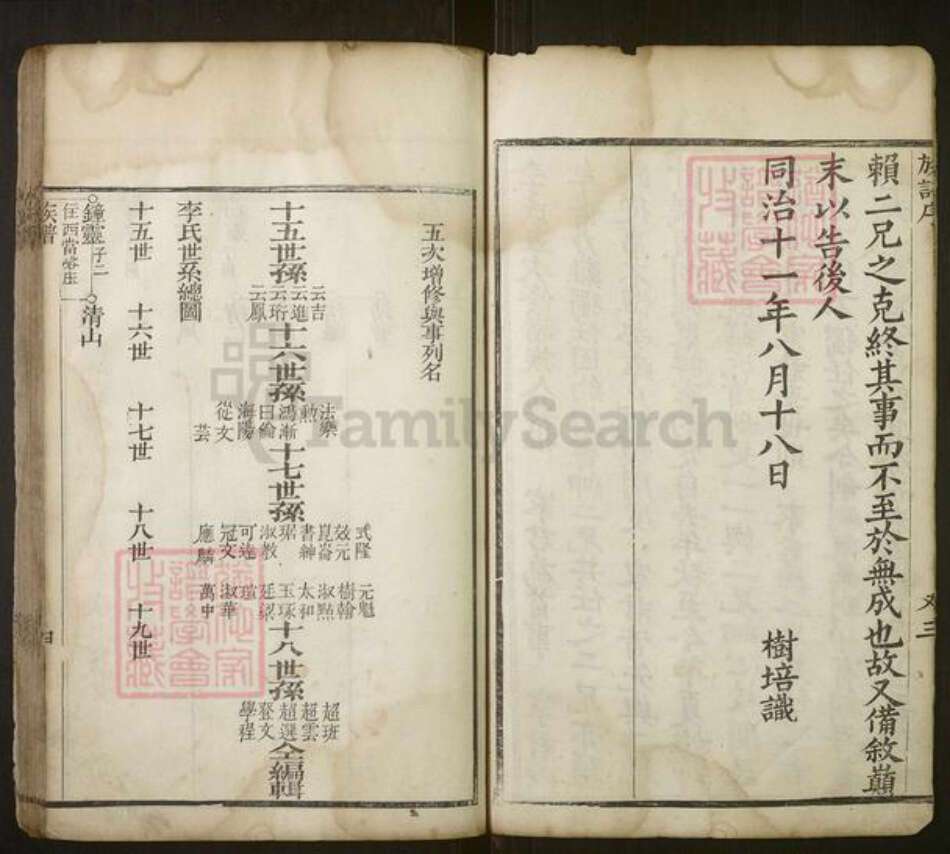 族譜序
賴二兄之克終其事而不至於無成也故又備敘巔
末以告後人
同治十一年八月十八日 樹培識
三
五次增修與事列名
十五世孫 云吉 云進 云珩 云鳳 十六世孫 法樂 勲 鴻漸 曰倫 海陽 從文 芸 十七世孫 式隆 效元 崑崙 書紳 琚 淑教 可達 冠文 應麟 元魁 樹翰 淑點 太和 玉琢 廷梁 瑄 淑華 萬中 十八世孫 超班 超雲 超選 登文 學程 仝編輯
李氏世系總圖
十五世 十六世 十七世 十八世 十九世
鐘靈 子二 清山
住西當 庄
族譜
四
FamilySearch